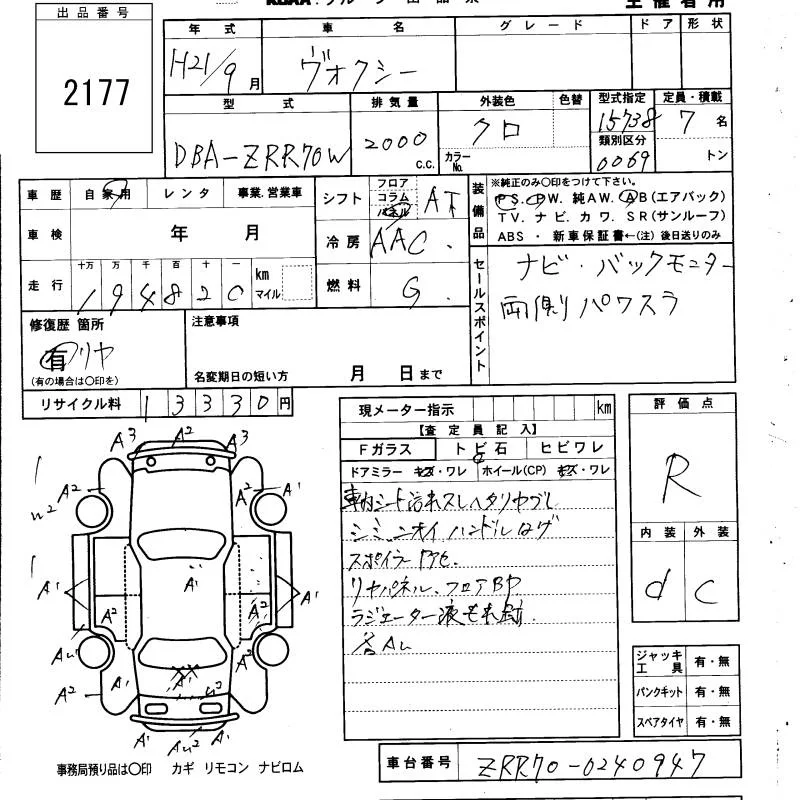 出品番号
2177
年式
H21/9月
車名
ヴォクシー
グレード
ドア
形状
型式
DBA-ZRR70W
排気量
2000 c.c.
外装色
クロ
色替
カラーNo.
型式指定
15738
類別区分
0069
定員・積載
7名
トン
車歴
自家用
レンタ
事業.営業車
車検
年 月
走行
十万 万 千 百 十 一
194820
km
マイル
シフト
フロア
コラム
パネル
AT
冷房
AAC.
燃料
G.
装備品
※純正のみ〇印をつけて下さい。
P S. P W. 純A W. A B(エアバック)
T V. ナ ビ. カ ワ. S R(サンルーフ)
ABS ・ 新車保証書←(注) 後日送りのみ
セールスポイント
ナビ・バックモニター
両側パワスラ
修復歴 箇所
有 リヤ
(有の場合は〇印を)
注意事項
名変期日の短い方 月 日まで
リサイクル料
13330円
現メーター指示
km
【査定員記入】
Fガラス
トビ石
ヒビワレ
ドアミラー キズ・ワレ
ホイール(CP) キズ・ワレ
車内シート汚れスレヘタリヤブレ
シミ ニオイ ハンドルハゲ
スポイラー
リヤパネル、フロアBP
ラジエーター液もれ跡.
各AU
評価点
R
内装
外装
d
C
ジャッキ
工具
有・無
パンクキット
有・無
スペアタイヤ
有・無
A3
A2
A3
A2
A1
A2
W2
A1
A1
A1
A1
A2
A2
AU
A2
A1
A1
U2
A1
A1
A1
AU2
事務局預り品は〇印 カギ リモコン ナビロム
車台番号
ZRR70-0240947